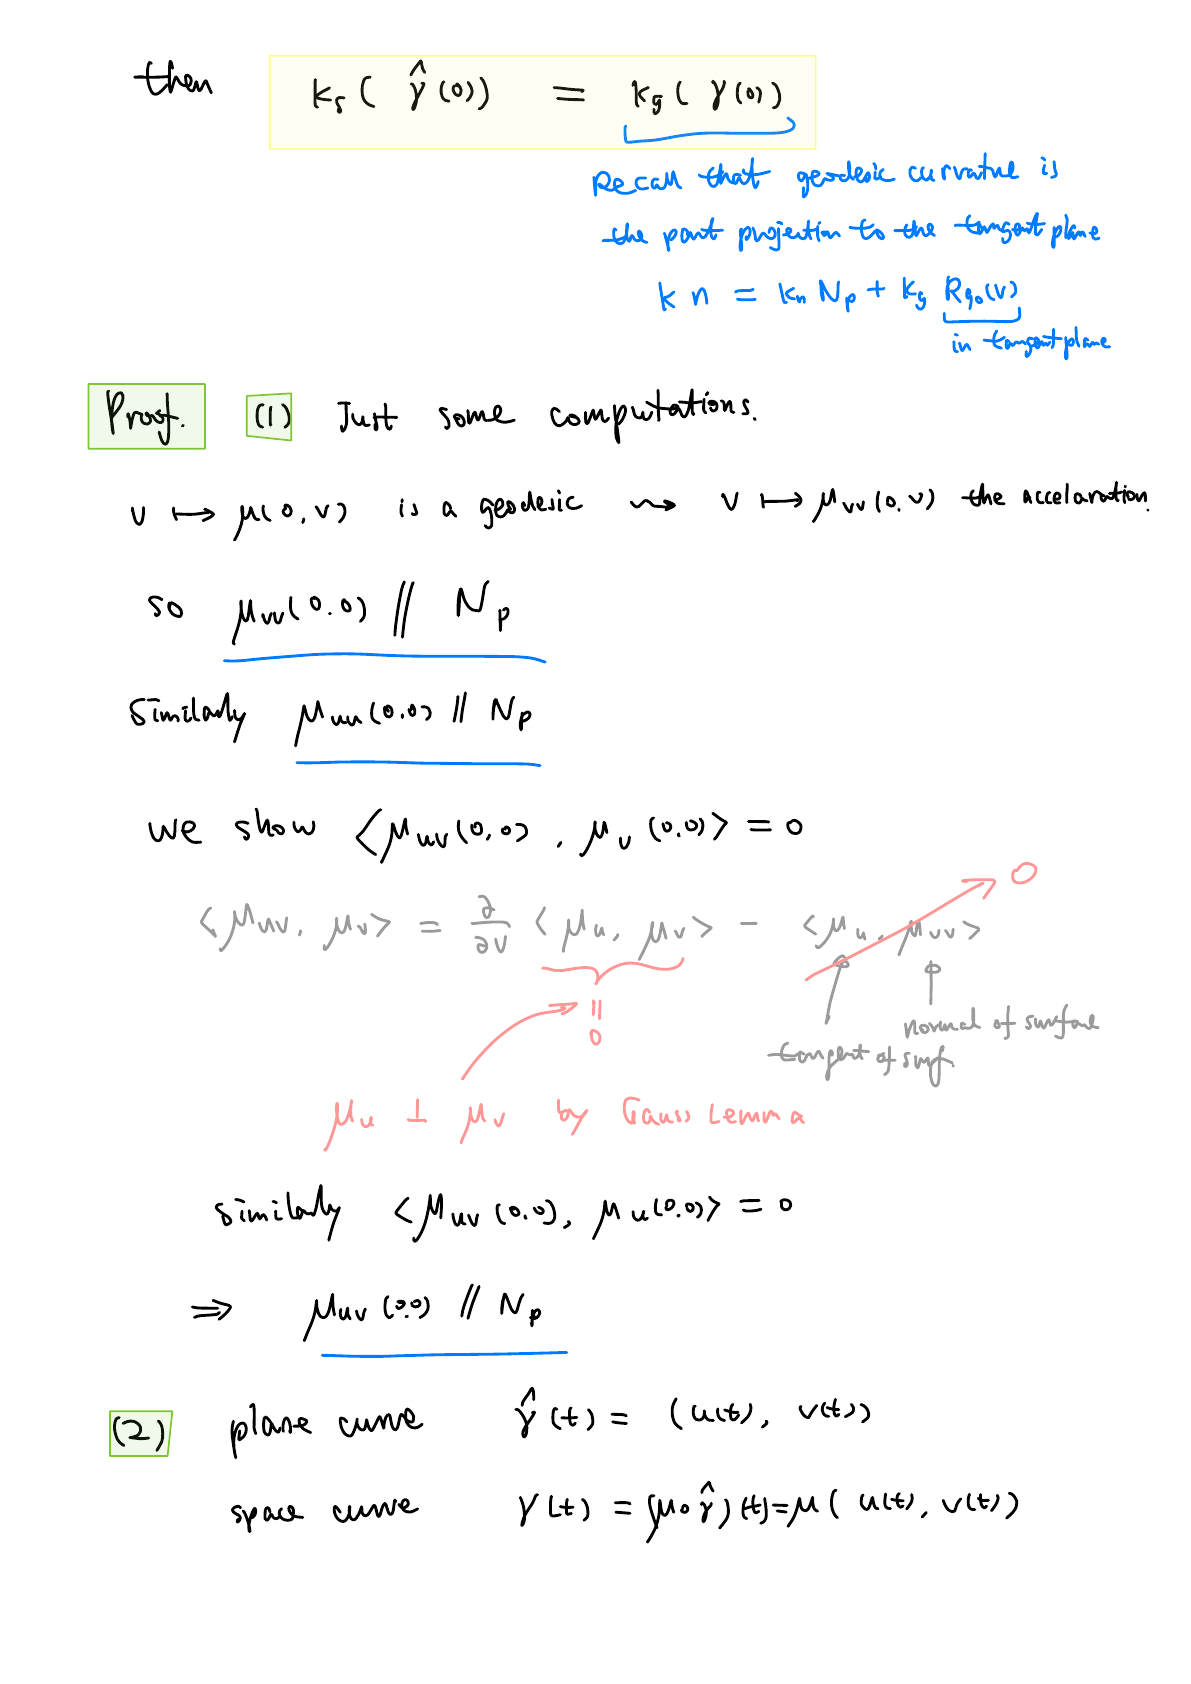 then k_s(γ̂(0)) = k_g(γ(0))
Recall that geodesic curvature is
the part projection to the tangent plane
k n = k_n N_p + k_g R_90(v)
in tangent plane
Proof. (1) Just some computations.
v ↦ μ(0,v) is a geodesic ⇝ v ↦ μ_vv(0,v) the accelaration.
so μ_vv(0.0) // N_p
Similarly μ_uu(0.0) // N_p
we show <μ_uv(0,0), μ_v(0.0)> = 0
<μ_uv, μ_v> = ∂/∂v <μ_u, μ_v> - <μ_u, μ_vv> 0
||
0
normal of surface
tangent of surf
μ_u ⊥ μ_v by Gauss Lemma
similarly <μ_uv(0.0), μ_u(0.0)> = 0
⇒ μ_uv(0.0) // N_p
(2) plane curve γ̂(t) = (u(t), v(t))
space curve γ(t) = (μ∘γ̂)(t) = μ(u(t), v(t))